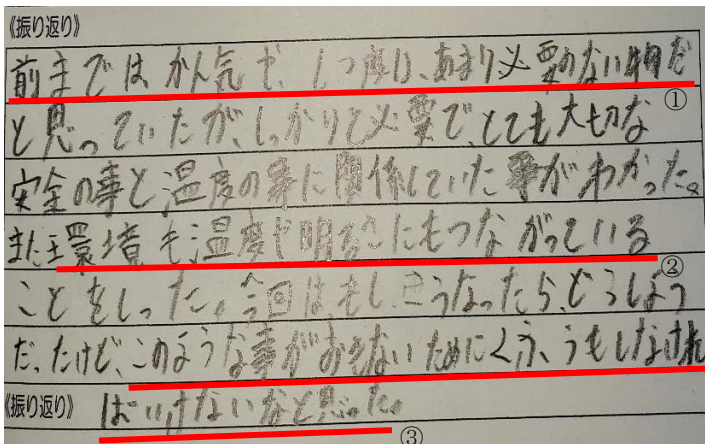 《振り返り》
前まではかん気や、しつ度は、あまり必要のない物だ
①
と思っていたが、しっかりと必要で、とても大切な
安全の事と温度の事に関係していた事がわかった。
また環境も温度や明るさにもつながっている
②
ことをしった。今回は、もし、こうなったら、どうしよう
だったけど、このような事がおきないためにくふうもしなけれ
《振り返り》 ばいけないなと思った。
③